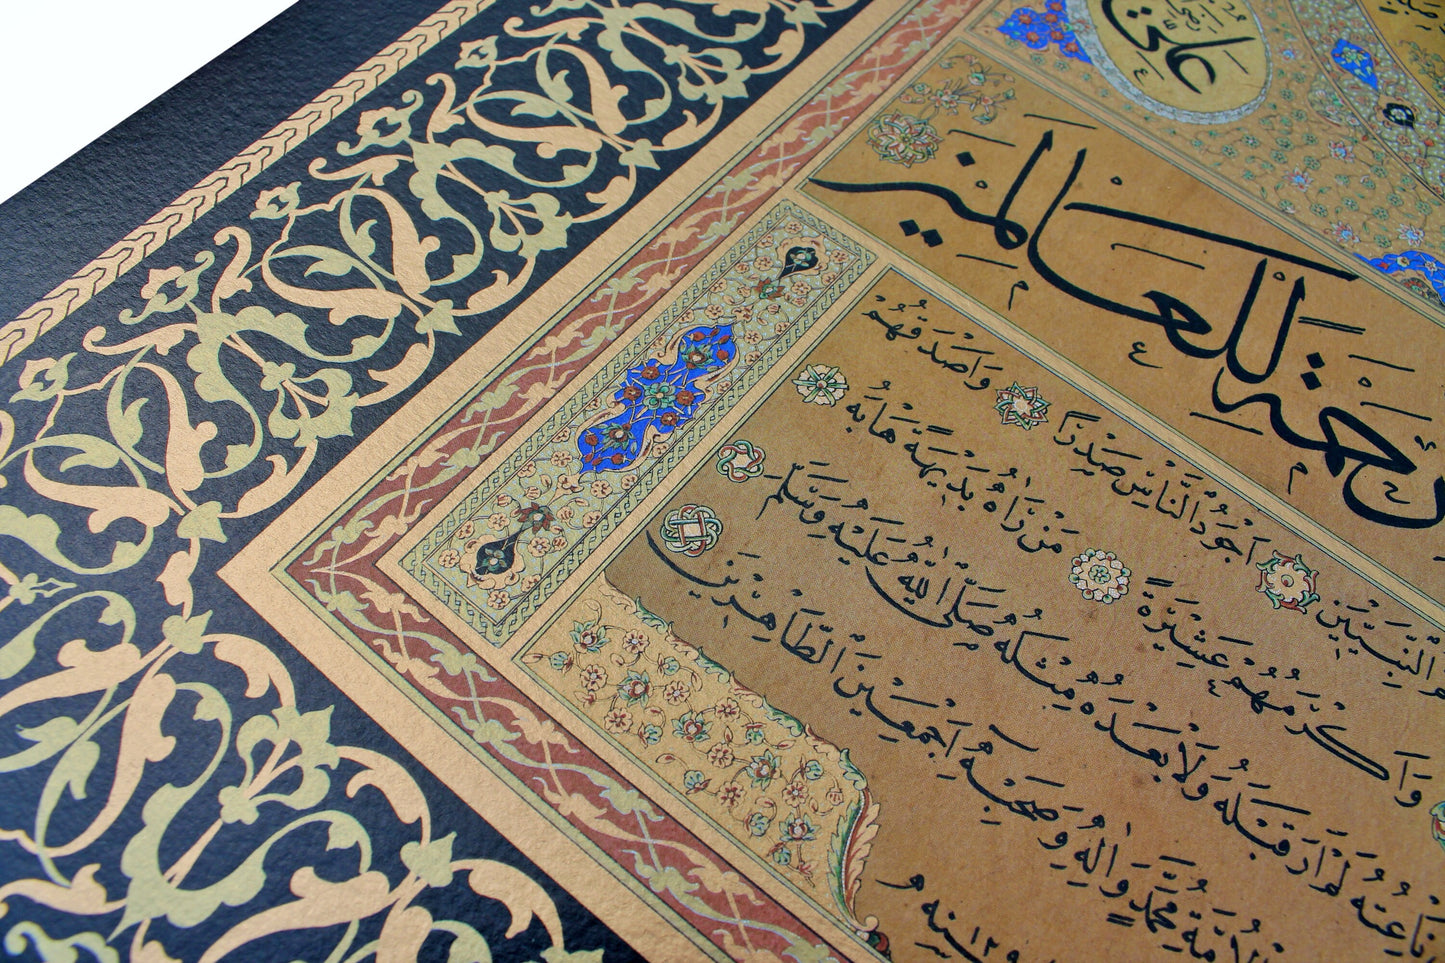 عَلِيّ
رَحْمَةً لِلْعَالَمِينَ
النَّبِيِّينَ اَجْوَدُ النَّاسِ صَدْرًا وَاَصْدَقُهُمْ
وَاَكْرَمُهُمْ عَشِيرَةً مَنْ رَاٰهُ بَدِيهَةً هَابَهُ
نَاعِتُهُ لَمْ اَرَ قَبْلَهُ وَلَا بَعْدَهُ مِثْلَهُ صَلَّى اللّٰهُ عَلَيْهِ وَسَلَّمَ
الْاُمَّةِ مُحَمَّدٍ وَاٰلِهِ وَصَحْبِهِ اَجْمَعِينَ الطَّاهِرِينَ
سنه ١٢٩